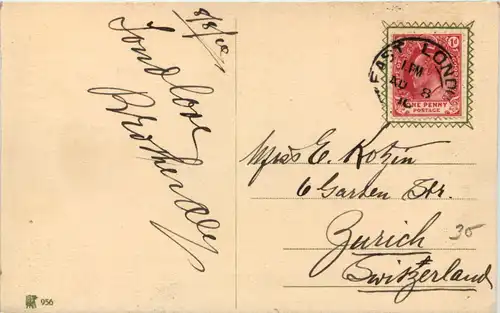 8/8/10
Fond love
Brother
EAST LONDON
1 PM
AU 8
10
1d
ONE PENNY
POSTAGE
Miss E. Kotzin
6 Garten Str.
Zurich
Switzerland
35
956